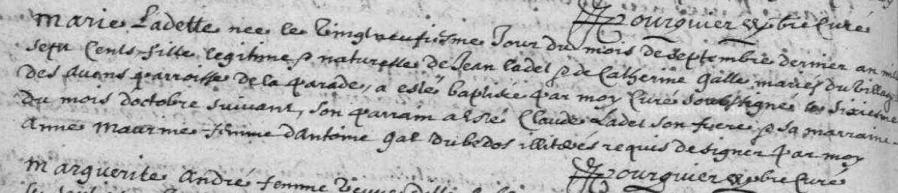 Pourquier pbre Curé
Marie Ladette nee le vingt neufiesme Jour du mois de septembre dernier an mil
sept Cents fille legitime & naturelle de Jean Ladet & de Catherine Galle mariés du village
des avens parroisse de la parade, a esté baptisée par moy Curé soubsigné le sixiesme
du mois doctobre suivant, son parrain a esté Claude Ladet son frere & sa marraine
Anne Maurine femme dAntoine Gal du bedos illiterés requis de signer par moy
Pourquier pbre Curé
Marguerite André femme